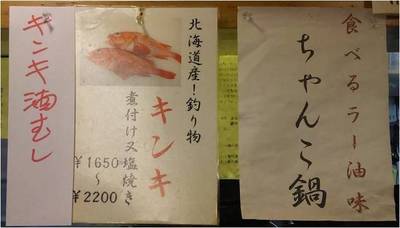 食べるラー油味
ちゃんこ鍋
北海道産!釣り物
キンキ
煮付け又塩焼き
¥1650
~
¥2200
キンキ油むし